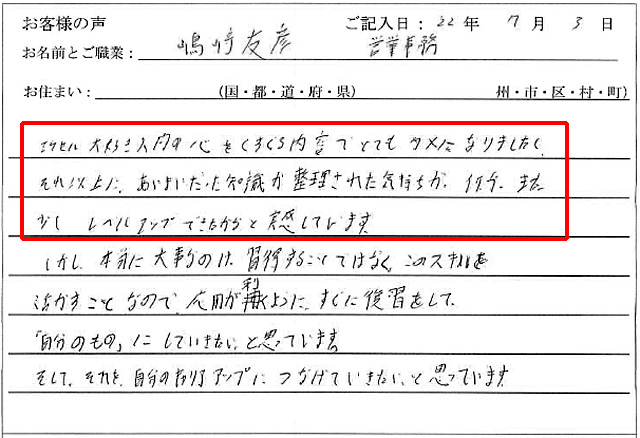 お客様の声
ご記入日：22年 7月 3日
お名前とご職業： 嶋﨑友彦 営業事務
お住まい： (国・都・道・府・県) 州・市・区・村・町)
エクセル大好き人間の心をくすぐる内容でとてもタメになりましたし、
それ以上に、あいまいだった知識が整理された気持ちが、何か、また
少し レベルアップできたかなと実感しています
しかし、本当に大事なのは、習得することではなく、このスキルを
活かすことなので、応用が利くように、すぐに復習をして、
「自分のもの」にしていきたい、と思っています
そして、それを、自分のキャリアアップに つなげていきたい、と思っています